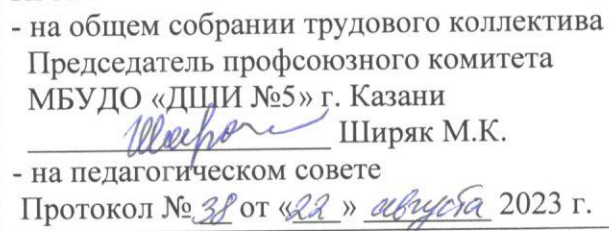 - на общем собрании трудового коллектива
Председатель профсоюзного комитета
МБУДО «ДШИ №5» г. Казани
Ширяк М.К.
- на педагогическом совете
Протокол № 38 от «22» августа 2023 г.